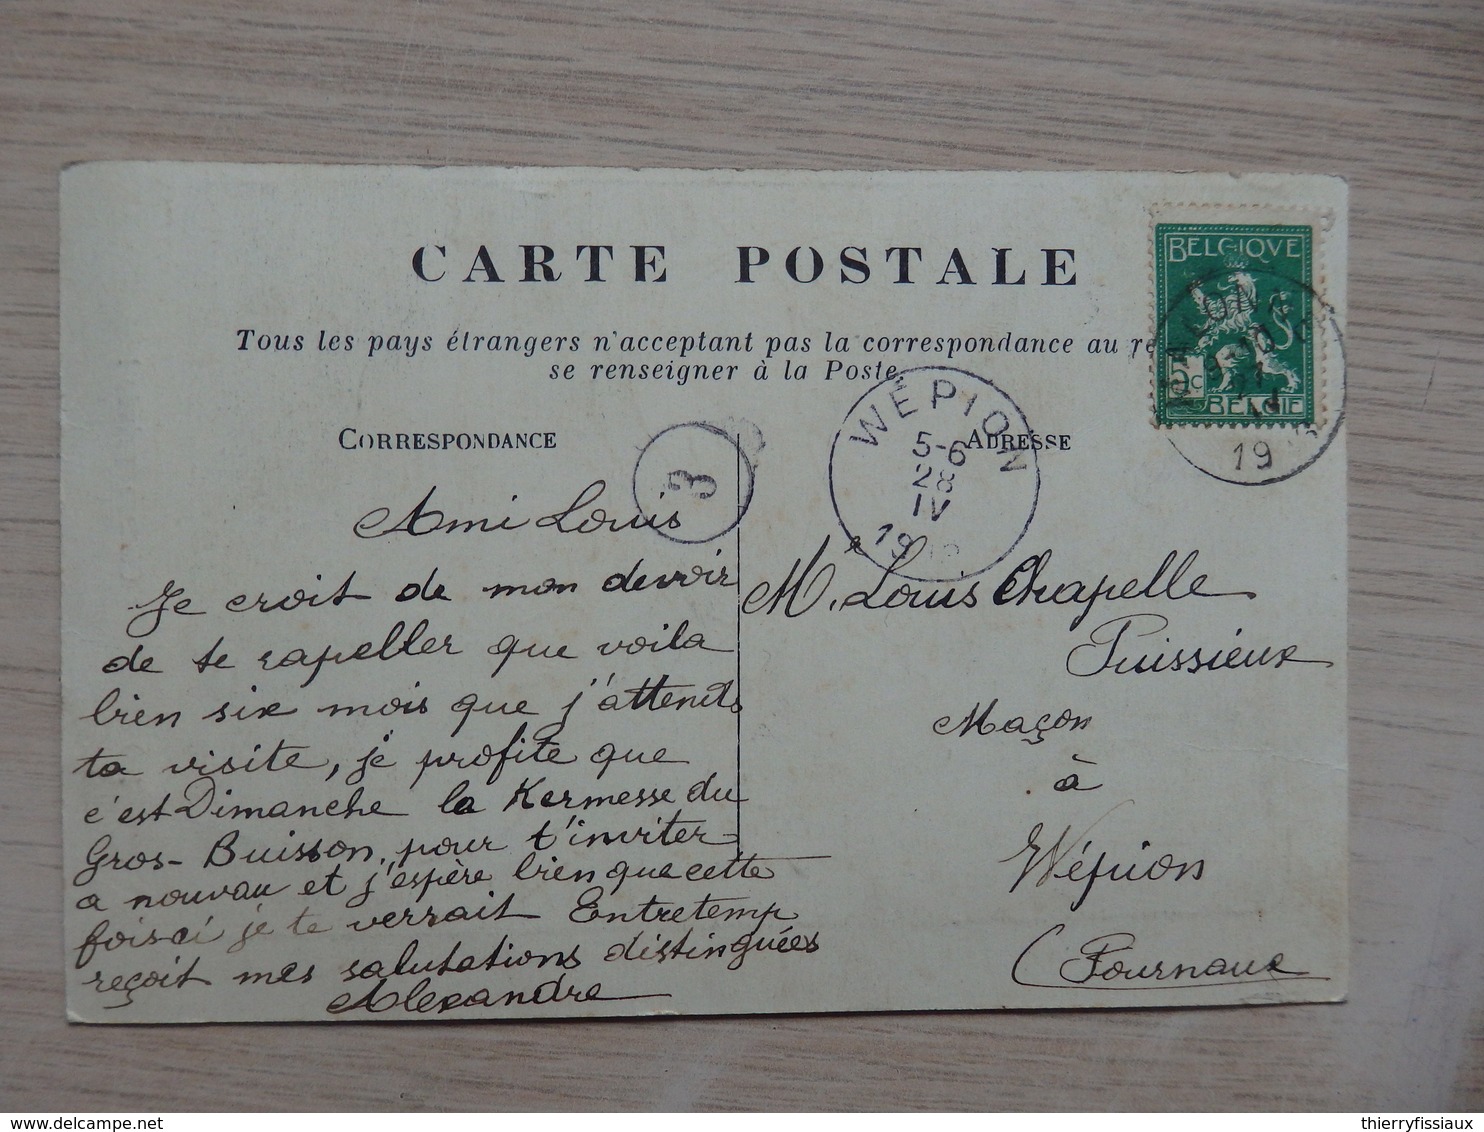 CARTE POSTALE
Tous les pays étrangers n'acceptant pas la correspondance au
se renseigner à la Poste.
CORRESPONDANCE
ADRESSE
BELGIQVE
5c
BELGIË
9-10
27
IV
19
WÉPION
5-6
28
IV
19
3
Ami Louis
Je croit de mon devoir
de te rapeller que voila
bien six mois que j'attends
ta visite, je profite que
c'est Dimanche la Kermesse du
Gros-Buisson, pour t'inviter
a nouvau et j'espère bien que cette
fois-ci je te verrait Entretemp
reçoit mes salutations distinguées
Alexandre
Mr. Louis Chapelle
Puissieux
Maçon
à
Wépion
(Fournaux
thierryfissiaux